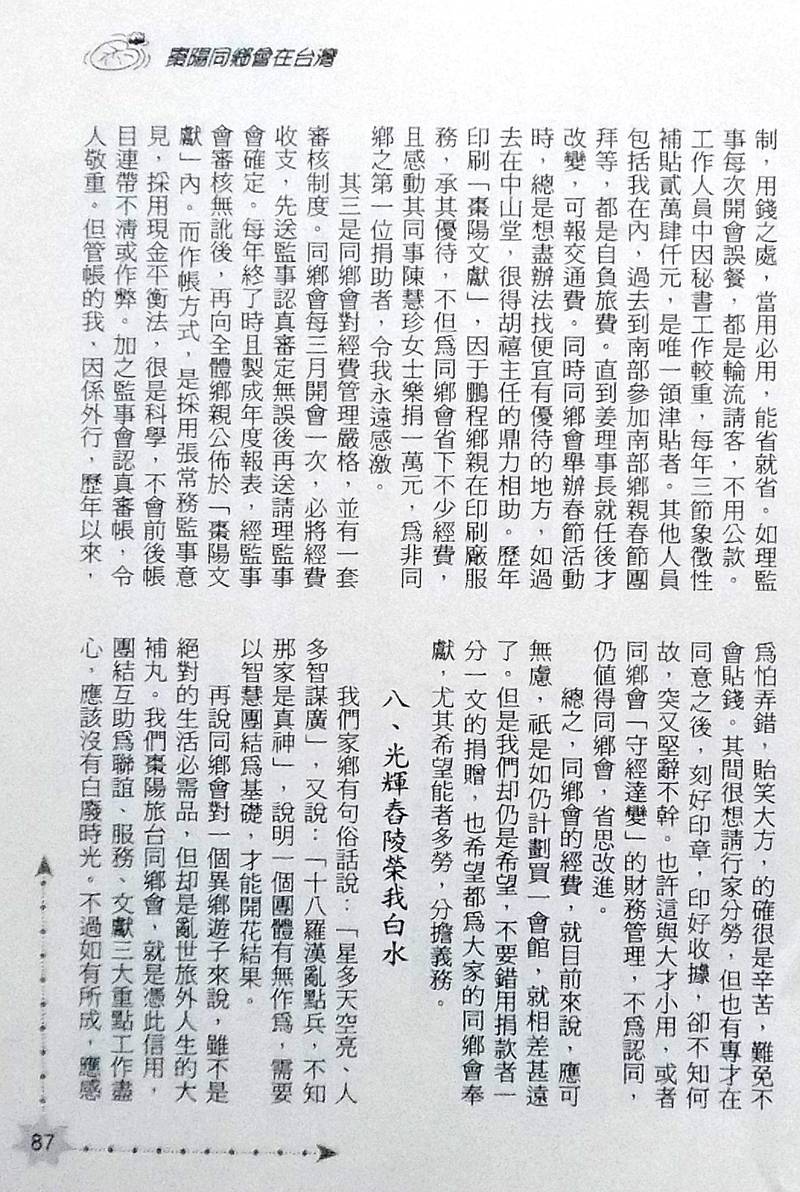 棗陽同鄉會在台灣
制，用錢之處，當用必用，能省就省。如理監
事每次開會誤餐，都是輪流請客，不用公款。
工作人員中因秘書工作較重，每年三節象徵性
補貼貳萬肆仟元，是唯一領津貼者。其他人員
包括我在內，過去到南部參加南部鄉親春節團
拜等，都是自負旅費。直到姜理事長就任後才
改變，可報交通費。同時同鄉會舉辦春節活動
時，總是想盡辦法找便宜有優待的地方，如過
去在中山堂，很得胡禧主任的鼎力相助。歷年
印刷「棗陽文獻」，因于鵬程鄉親在印刷廠服
務，承其優待，不但爲同鄉會省下不少經費，
且感動其同事陳慧珍女士樂捐一萬元，爲非同
鄉之第一位捐助者，令我永遠感激。
其三是同鄉會對經費管理嚴格，並有一套
審核制度。同鄉會每三月開會一次，必將經費
收支，先送監事認真審定無誤後再送請理監事
會確定。每年終了時且製成年度報表，經監事
會審核無訛後，再向全體鄉親公佈於「棗陽文
獻」內。而作帳方式，是採用張常務監事意
見，採用現金平衡法，很是科學，不會前後帳
目連帶不清或作弊。加之監事會認真審帳，令
人敬重。但管帳的我，因係外行，歷年以來，
爲怕弄錯，貽笑大方，的確很是辛苦，難免不
會貼錢。其間很想請行家分勞，但也有專才在
同意之後，刻好印章，印好收據，卻不知何
故，突又堅辭不幹。也許這與大才小用，或者
同鄉會「守經達變」的財務管理，不爲認同，
仍值得同鄉會，省思改進。
總之，同鄉會的經費，就目前來說，應可
無慮，祇是如仍計劃買一會館，就相差甚遠
了。但是我們却仍是希望，不要錯用捐款者一
分一文的捐贈，也希望都爲大家的同鄉會奉
獻，尤其希望能者多勞，分擔義務。
八、光輝舂陵榮我白水
我們家鄉有句俗話說：「星多天空亮、人
多智謀廣」，又說：「十八羅漢亂點兵，不知
那家是真神」，說明一個團體有無作爲，需要
以智慧團結爲基礎，才能開花結果。
再說同鄉會對一個異鄉遊子來說，雖不是
絕對的生活必需品，但却是亂世旅外人生的大
補丸。我們棗陽旅台同鄉會，就是憑此信用，
團結互助爲聯誼、服務、文獻三大重點工作盡
心，應該沒有白廢時光。不過如有所成，應感
87